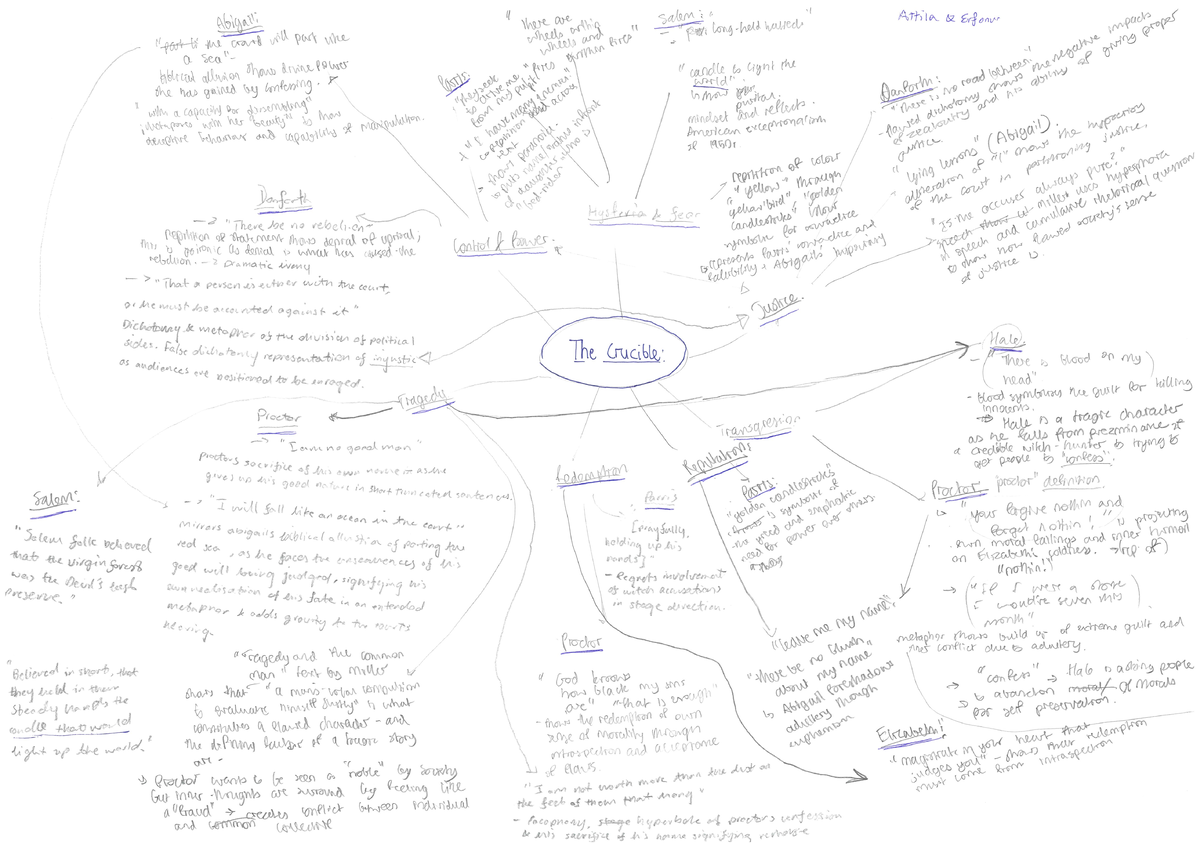 Abigail:
"part to the crowd will part like
a sea" -
biblical allusion shows divine power
she has gained by confessing.
"with a capacity for dissembling"
juxtaposes with her "beauty" to show
deceptive behaviour and capability of manipulation.
Parris:
"They seek
to drive me
from my pulpit"
"I have many enemies"
- shows paranoia
"There are
wheels within
wheels and
fires within fires"
Salem:
- "long-held hatreds"
"candle to light the
world"
puritan
mindset and reflects
American exceptionalism
of 1950s.
Attila &
Danforth:
"There is no road between"
- flawed dichotomy shows the negative impacts
of zealoutry and his ability of giving proper
justice
"lying lessons" (Abigail)
alliteration of "l" shows the hypocrisy
of the court in partitioning justice.
"Is the accuser always pure?"
speech Miller uses hypophora
in speech and cumulative rhetorical question
to show how flawed society's sense
of justice is.
repetition of colour
"yellow" through
yellow bird, "golden
candlesticks"
symbolic for cowardice
represents Parris' cowardice and
Abigail's hypocrisy
Hysteria & Fear
Control & Power
Justice
Danforth
-> "There be no rebellion"
Repetition of statement shows denial of uprisal,
this is ironic as denial is what has caused the
rebellion. -> Dramatic irony
-> "That a person is either with the court,
or he must be accounted against it"
Dichotomy & metaphor of the division of political
sides. False dichotomy representation of injustice
as audiences are positioned to be enraged.
The Crucible:
Tragedy
Transgression
Redemption
Reputations
Hale
- "There is blood on my
head"
- Blood symbolises the guilt for killing
innocents.
-> Hale is a tragic character
as he falls from
credible witch-hunter to trying to
get people to "confess".
Proctor
-> "I am no good man"
Proctors sacrifice of his own name as he
gives up his good nature in short truncated sentences.
-> "I will fall like an ocean in the court"
mirrors abigails biblical allusion of parting the
red sea, as he faces the consequences of his
good will being judged, signifying his
own realisation of his fate in an extended
metaphor & adds gravity to the courts
hearing.
Salem:
"Salem folk believed
that the virgin forest
was the Devil's last
preserve."
"Believed in short, that
they held in their
steady hands the
candle that would
light up the world."
"Tragedy and the common
man" text by Miller
shares that "a mans total compulsion
to evaluate himself justly" is what
constitutes a flawed character - and
the defining factor of a tragic story
arc -
-> Proctor wants to be seen as "noble" by society
but inner thoughts are surround by feeling like
a "fraud" -> creates conflict between individual
and common collective
Parris
[prayfully,
holding up his
hands]
- Regrets involvement
of witch accusations
in stage direction.
Parris:
"golden candlesticks"
- symbolic of
his greed and emphatic
need for power over others
Proctor
"God knows
how black my sins
are" "that is enough"
- shows the redemption of own
sense of morality through
introspection and acceptance
of flaws.
"I am not worth more than the dust on
the feet of them that hang"
- Cacophony, stage hyperbole of proctors confession
& his sacrifice of his name signifying
"leave me my name"
"there be no blush
about my name"
-> Abigail foreshadows
adultery through
euphemism
Proctor "proctor" definition
"you forgive nothin and
forget nothin!"
own moral failings and inner turmoil
on Elizabeth's
"nothin"
-> "If I were
month"
metaphor shows build up of extreme guilt and
inner conflict due to adultery.
-> "confess" -> Hale is asking people
to abandon moral of morals
for self preservation.
Elizabeth:
"magistrate in your heart that
judges you" - shows their redemption
must come from introspection